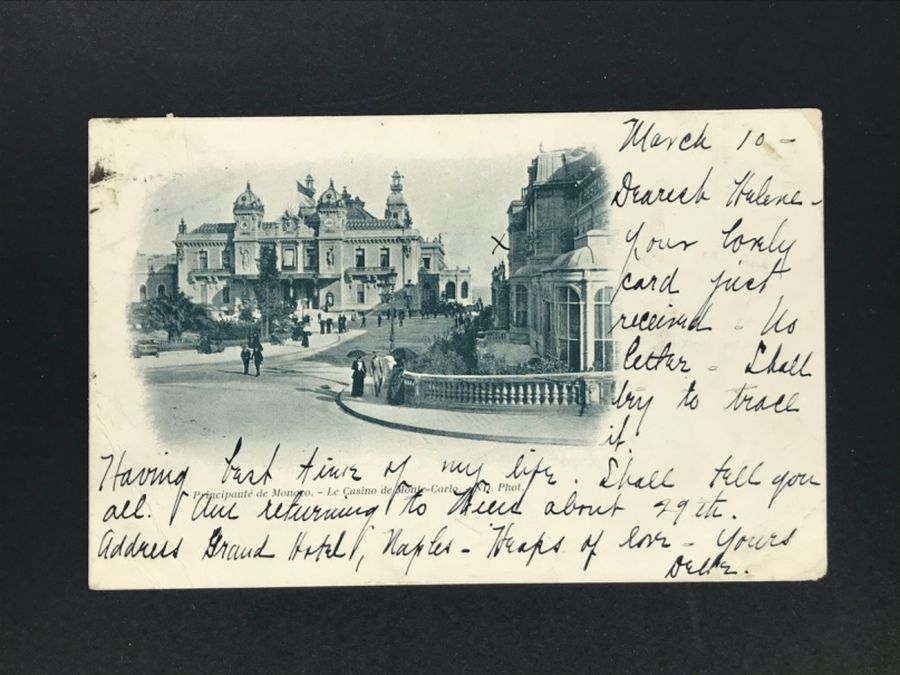 March 10 -
Dearest Helene -
Your lovely
card just
received - No
letter - Shall
try to trace
it.
Having best time of my life. Shall tell you
Principauté de Monaco. - Le Casino de Monte-Carlo. - ND. Phot.
all. Am returning to about 29th.
Address Grand Hotel, Naples - Heaps of love - Yours